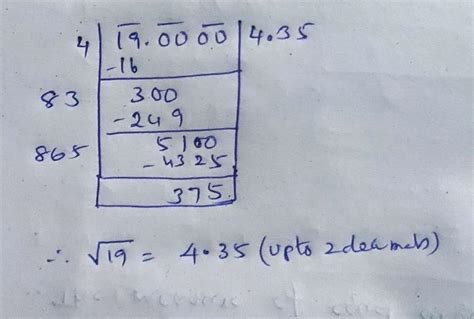 4 19.00 00 4.35
-16
83 300
-249
865 5100
-4325
375
∴ √19 = 4.35 (upto 2 decimals)